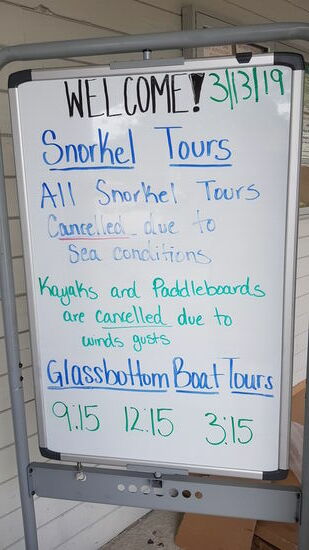 WELCOME! 3/13/19
Snorkel Tours
All Snorkel Tours
Cancelled due to
Sea conditions
Kayaks and Paddleboards
are cancelled due to
winds gusts
Glassbottom Boat Tours
9:15 12:15 3:15